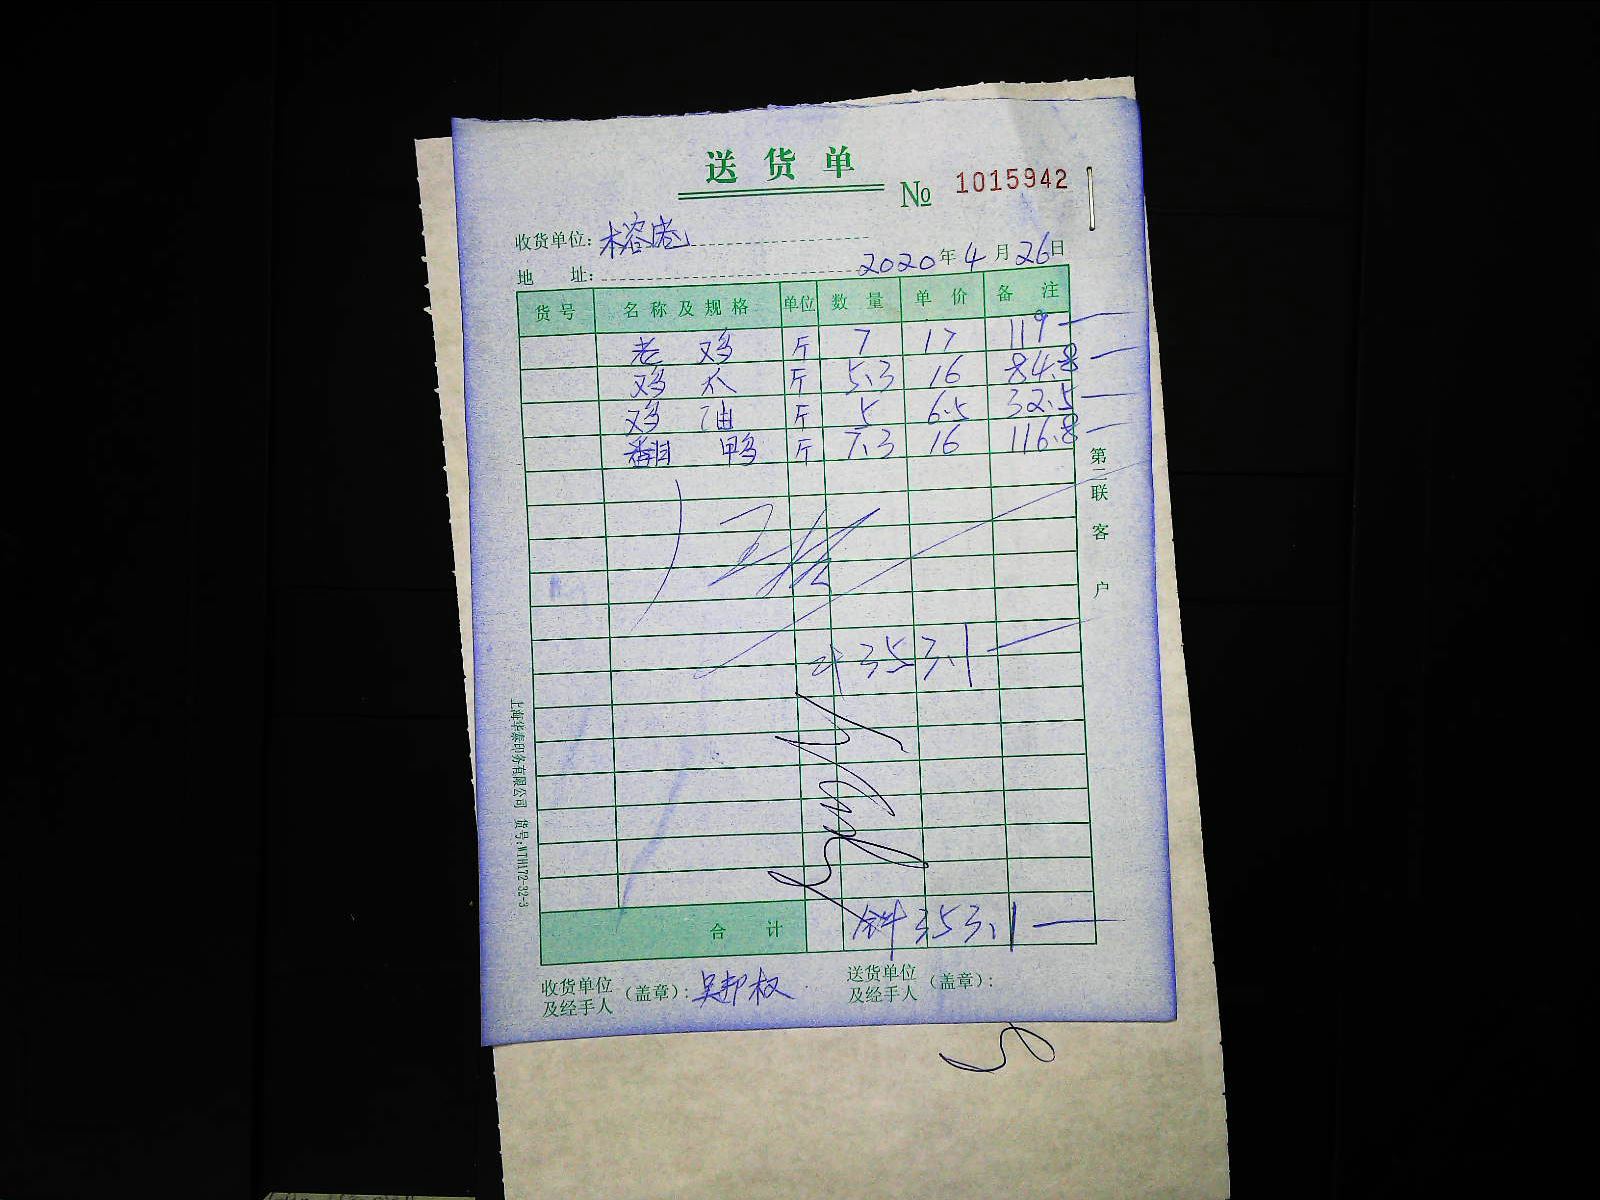 送货单
№ 1015942
收货单位: 榕港
地 址: 2020年4月26日
货号 名称及规格 单位 数量 单价 备注
老鸡 斤 7 17 119
鸡爪 斤 5.3 16 84.8
鸡油 斤 5 6.5 32.5
翻鸭 斤 7.3 16 116.8
353.1
合计 353.1
收货单位及经手人(盖章): 吴邦权
送货单位及经手人(盖章):
第二联 客户
上海华泰印务有限公司 货号:WTH172-32-3